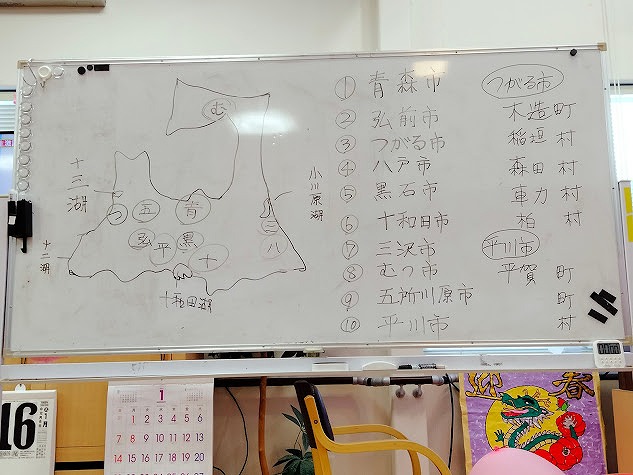 ① 青森市
② 弘前市
③ つがる市
④ 八戸市
⑤ 黒石市
⑥ 十和田市
⑦ 三沢市
⑧ むつ市
⑨ 五所川原市
⑩ 平川市
つがる市
木造町
稲垣村
森田村
車力村
柏村
平川市
平賀町
町
村
む
十三湖
小川原湖
つ 五 青
三
弘 平 黒 十 八
十二湖
十和田湖
16
1
1 2 3 4 5 6
7 8 9 10 11 12 13
14 15 16 17 18 19 20
迎春